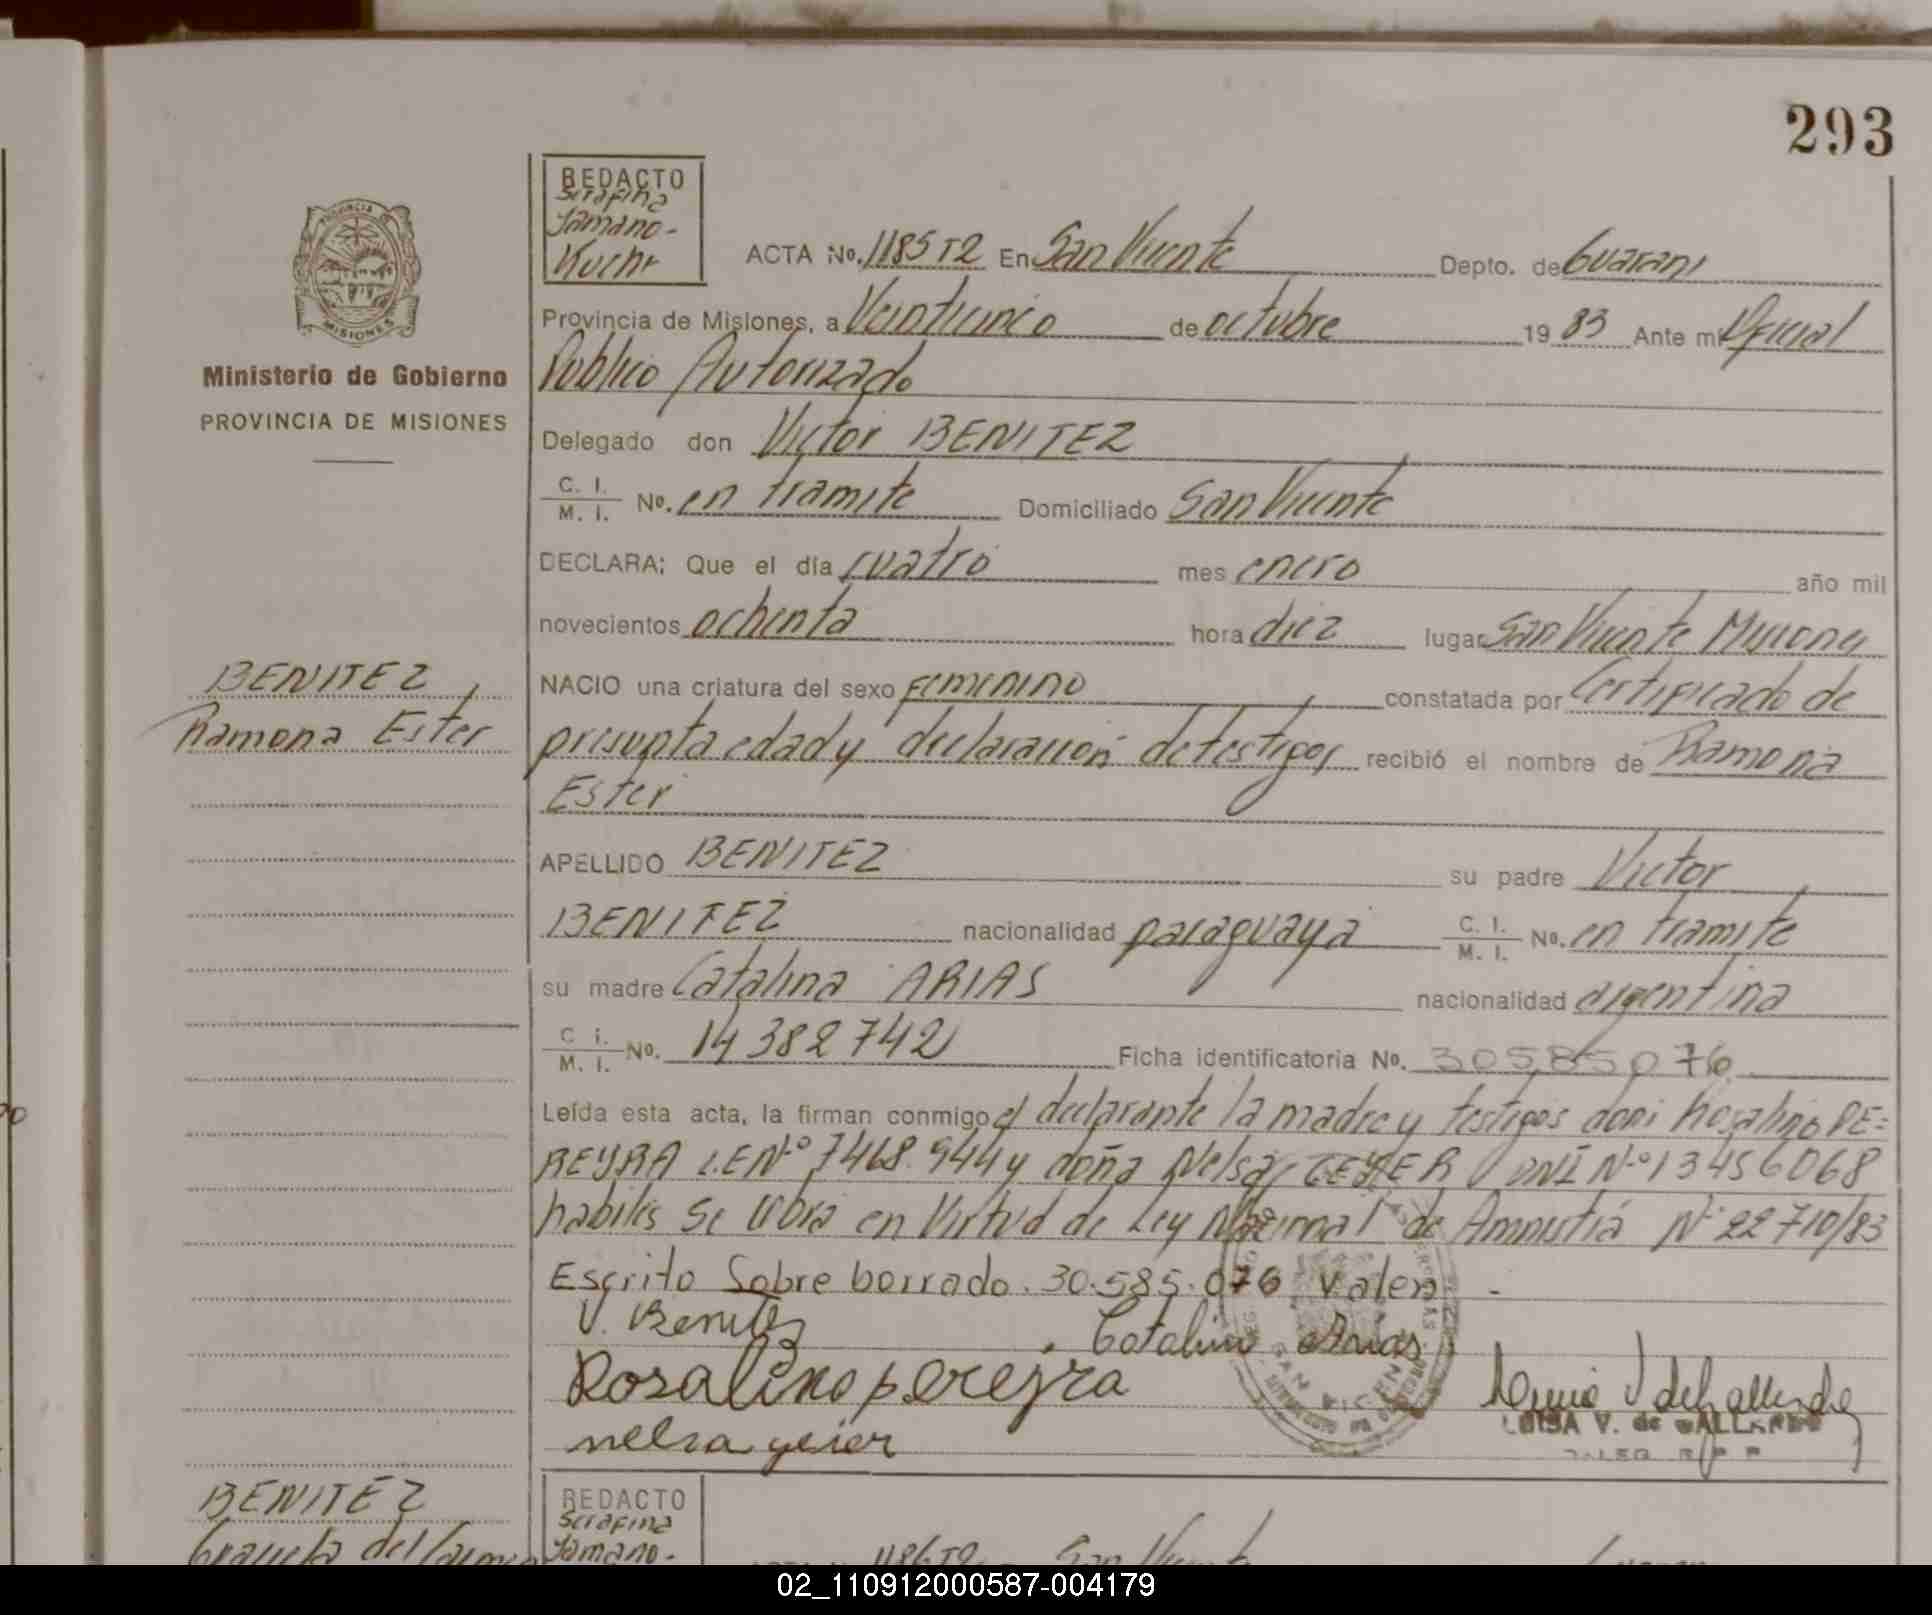 293
REDACTO
Serafina
Jamano-
Kuchr
ACTA No. 1185 T2 En San Vicente Depto. de Guarani
PROVINCIA DE
MISIONES
Provincia de Misiones, a Veinticinco de octubre 19 83 Ante mi Oficial
Publico Autorizado
Ministerio de Gobierno
PROVINCIA DE MISIONES
Delegado don Victor BENITEZ
C. I. / M. I. No. en tramite Domiciliado San Vicente
DECLARA: Que el día cuatro mes enero año mil
novecientos ochenta hora diez lugar San Vicente Misiones
BENITEZ,
NACIO una criatura del sexo femenino constatada por Certificado de
Ramona Ester
presunta edad y declaración de testigos recibió el nombre de Ramona
Ester
APELLIDO BENITEZ su padre Victor
BENITEZ nacionalidad paraguaya C. I. / M. I. No. en tramite
su madre Catalina ARIAS nacionalidad argentina
C. I. / M. I. No. 14 382 742 Ficha identificatoria No. 30585076
Leída esta acta, la firman conmigo el declarante la madre y testigos don Rosalino PE=
REYRA L.E Nº 7468.944 y doña Nelsa GEYER DNI Nº 13456068
habiles Se labra en Virtud de Ley Nacional de Amnistiá Nº 22 710/83
Escrito Sobre borrado. 30.585.076 Valen -
V. Benitez Catalina Arias
Rosalino pereyra
LUISA V. de GALLARDO
nelsa geier
SAN VICENTE
BENITEZ
REDACTO
Serafina
Graciela del Carmen
Jamano-
1186 T2 San Vicente
02_110912000587-004179